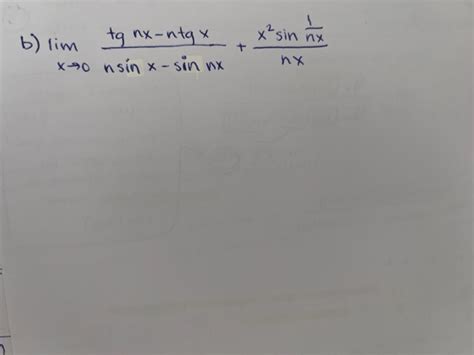 b) lim tg nx-ntg x / n sin x - sin nx + x² sin 1/nx / nx
x→0